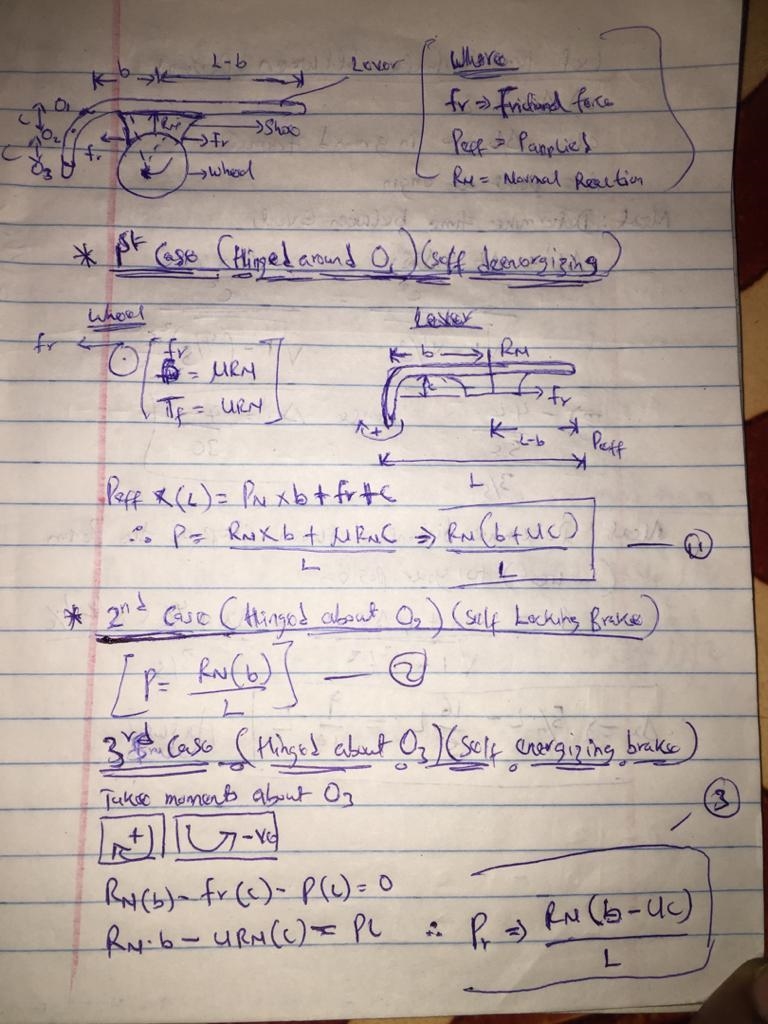 b L-b Lever
O1
C
O2
C
O3
RN
fr
fr
Shoe
Wheel
Where
fr ⇒ Frictional force
Peff = Papplied
RN = Normal Reaction
* 1st Case (Hinged around O1) (self deenergizing)
Wheel
Lever
fr
fr = μRN
Tf = μRN
b RN
c
fr
+
L-b Peff
L
Peff × (L) = RN × b + fr + C
∴ P = RN×b + μRNC / L ⇒ RN(b+μC) / L — 1
* 2nd Case (Hinged about O2) (Self Locking Brake)
[P = RN(b) / L] — 2
3rd Case (Hinged about O3) (Self energizing brake)
Takes moments about O3
3
+ -ve
RN(b) - fr(c) - P(L) = 0
RN·b - μRN(c) = PL ∴ Pr ⇒ RN(b-μC) / L